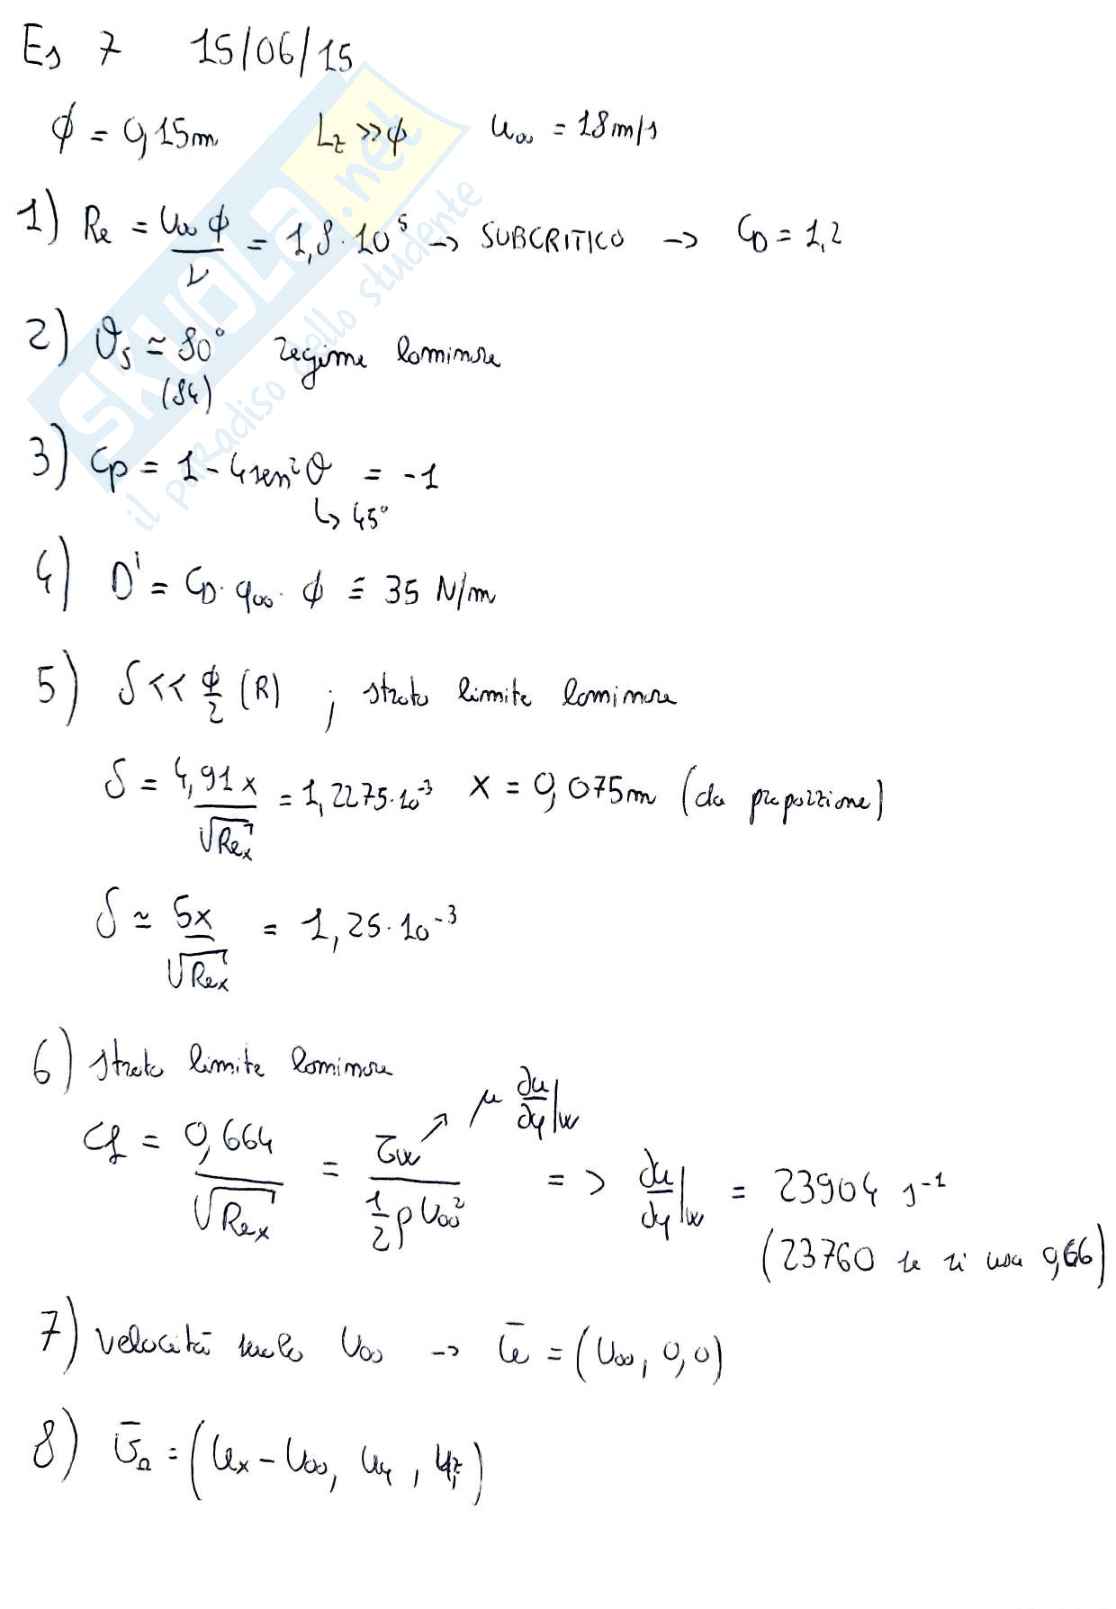 Es 7 15/06/15
ϕ = 0,15m Lz >> ϕ u∞ = 18 m/s
1) Re = U∞ ϕ / ν = 1,8·10⁵ → SUBCRITICO → CD = 1,2
2) θs ≃ 80° regime laminare
(84)
3) Cp = 1 - 4sen²θ = -1
↳ 45°
4) D' = CD · q∞ · ϕ = 35 N/m
5) δ << ϕ/2 (R) ; strato limite laminare
δ = 4,91x / √Rex = 1,2275·10⁻³ x = 0,075m (da proporzione)
δ ≃ 5x / √Rex = 1,25·10⁻³
6) strato limite laminare
Cf = 0,664 / √Rex = τw / ½ρU∞² ↗ μ ∂u/∂y|w => du/dy|w = 23904 s⁻¹
(23760 se si usa 0,66)
7) velocità U∞ → ū = (U∞, 0, 0)
8) ῡΩ = (Ux - U∞, Uy, Uz)
SKUOLA.net
il paradiso dello studente